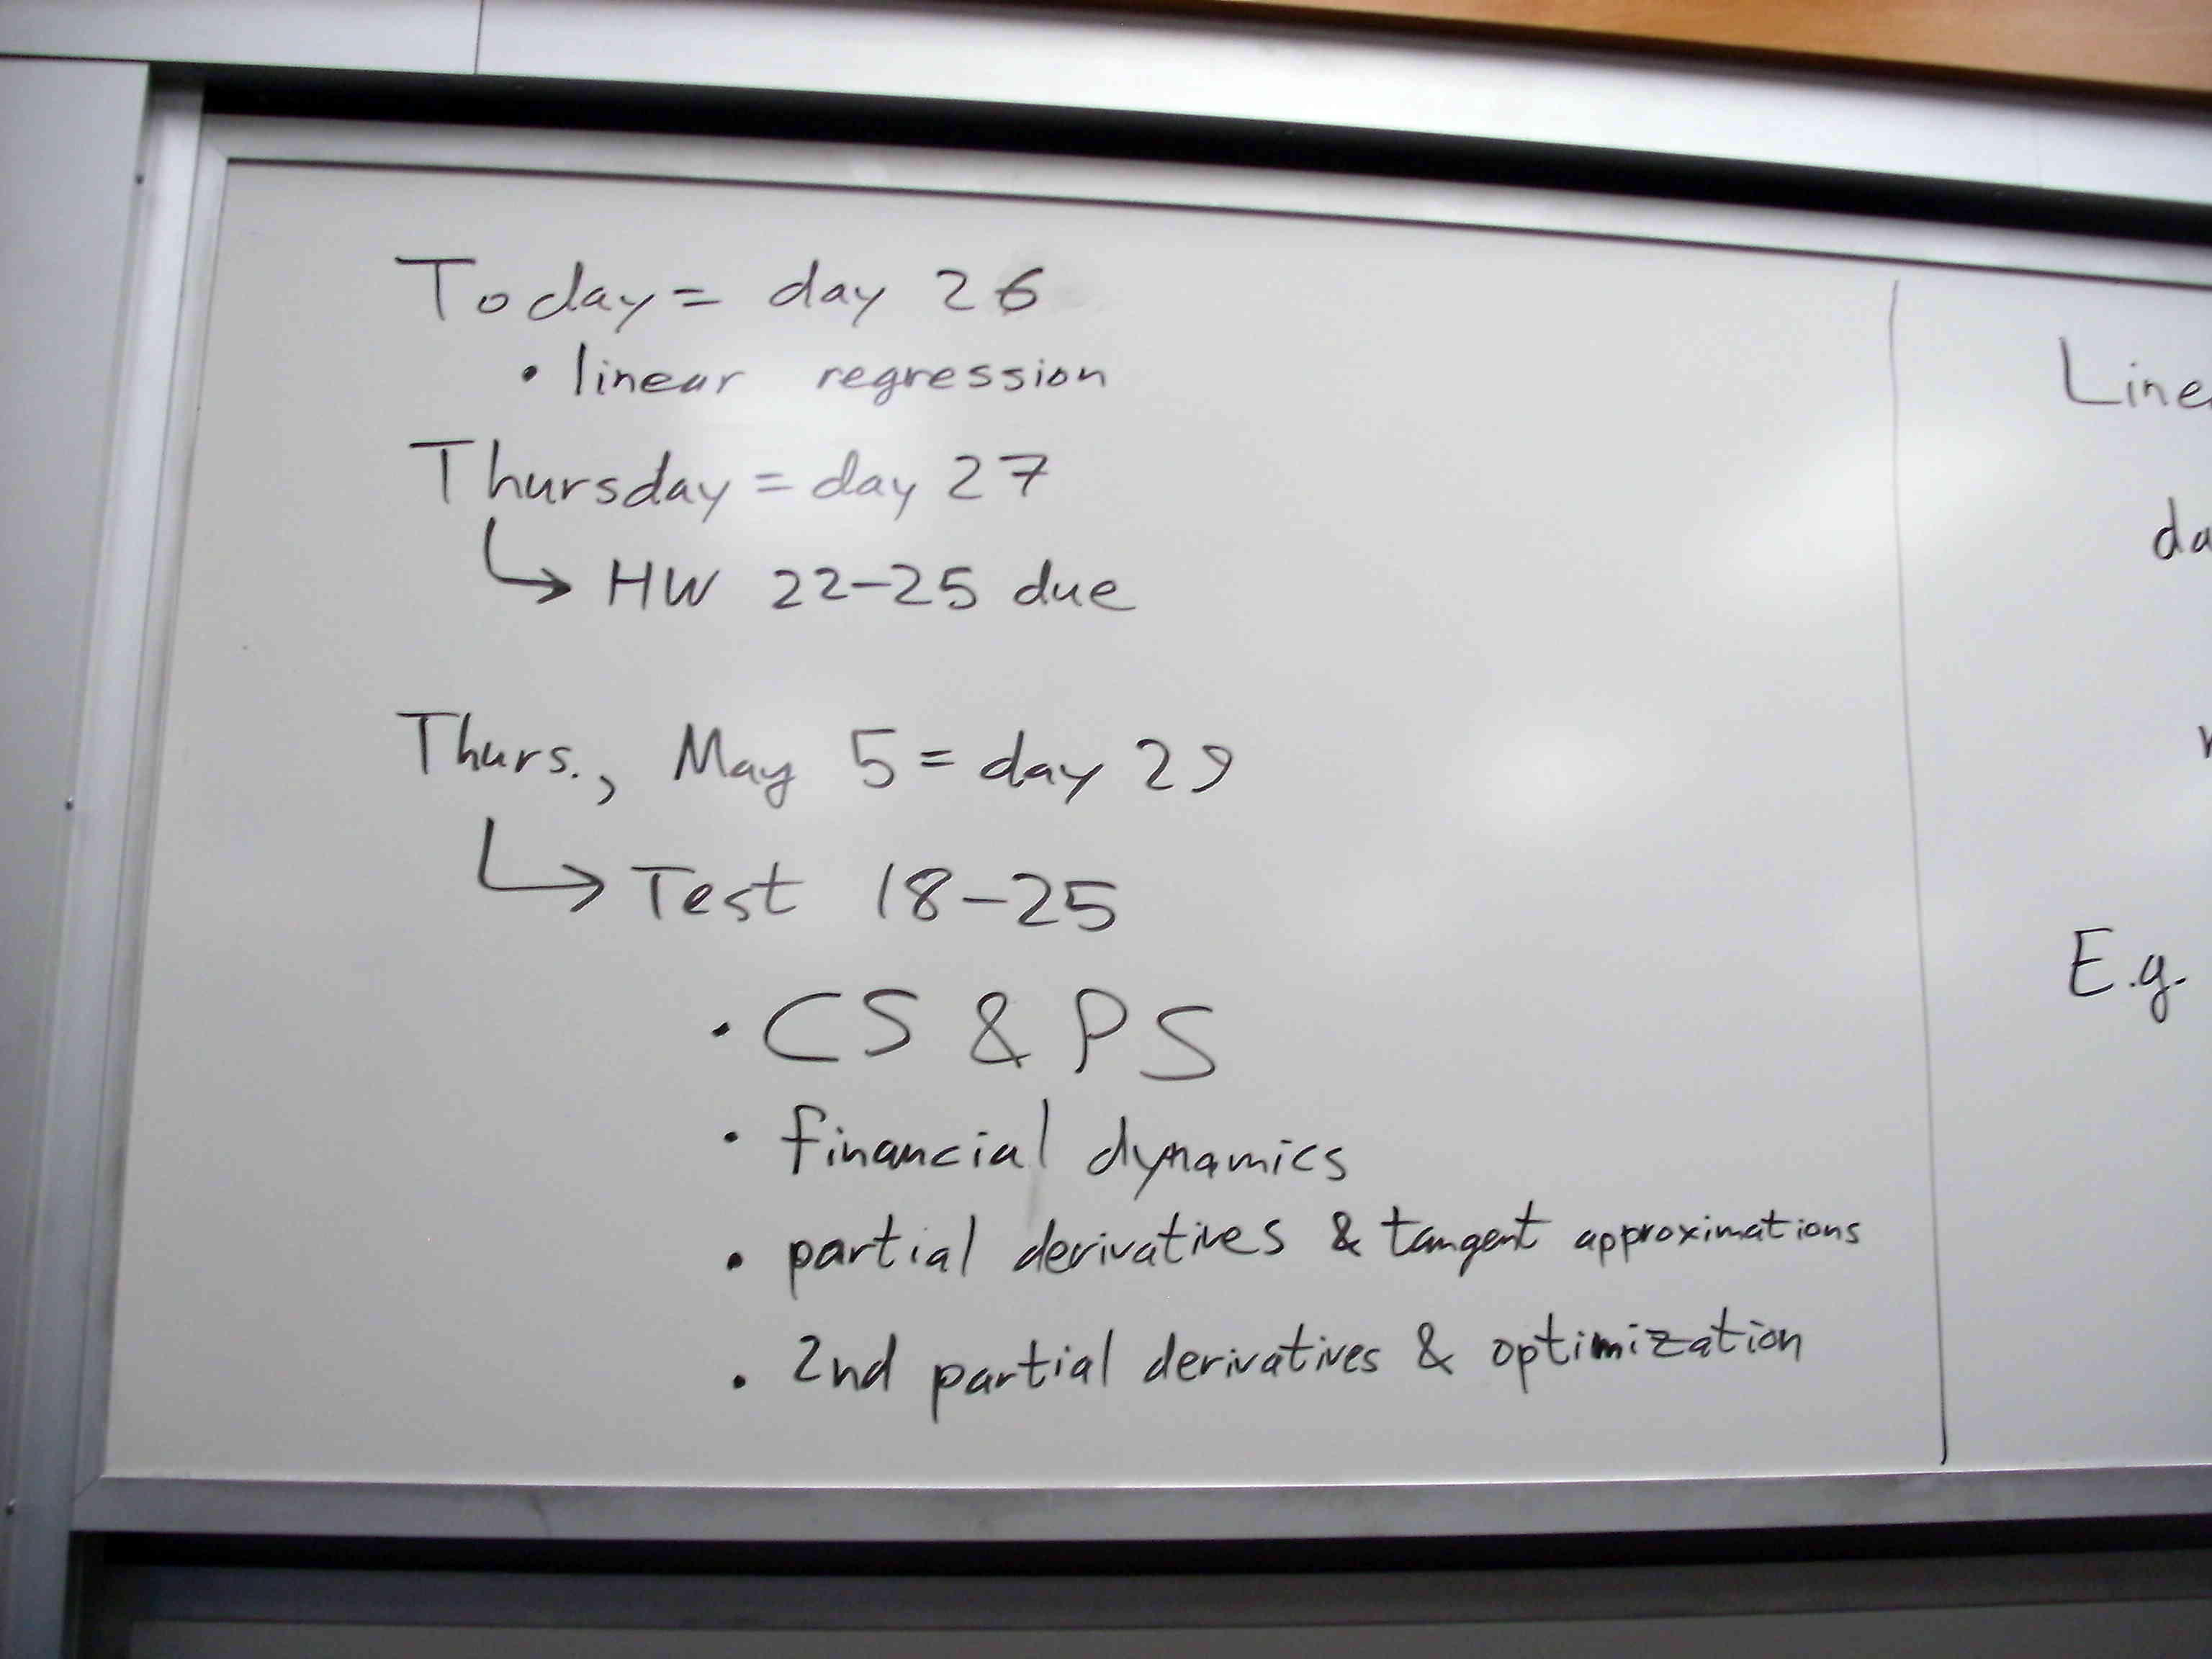 Today = day 26
• linear regression
Thursday = day 27
↳ HW 22-25 due
Thurs., May 5 = day 29
↳ Test 18-25
• CS & PS
• financial dynamics
• partial derivatives & tangent approximations
• 2nd partial derivatives & optimization
E.g.